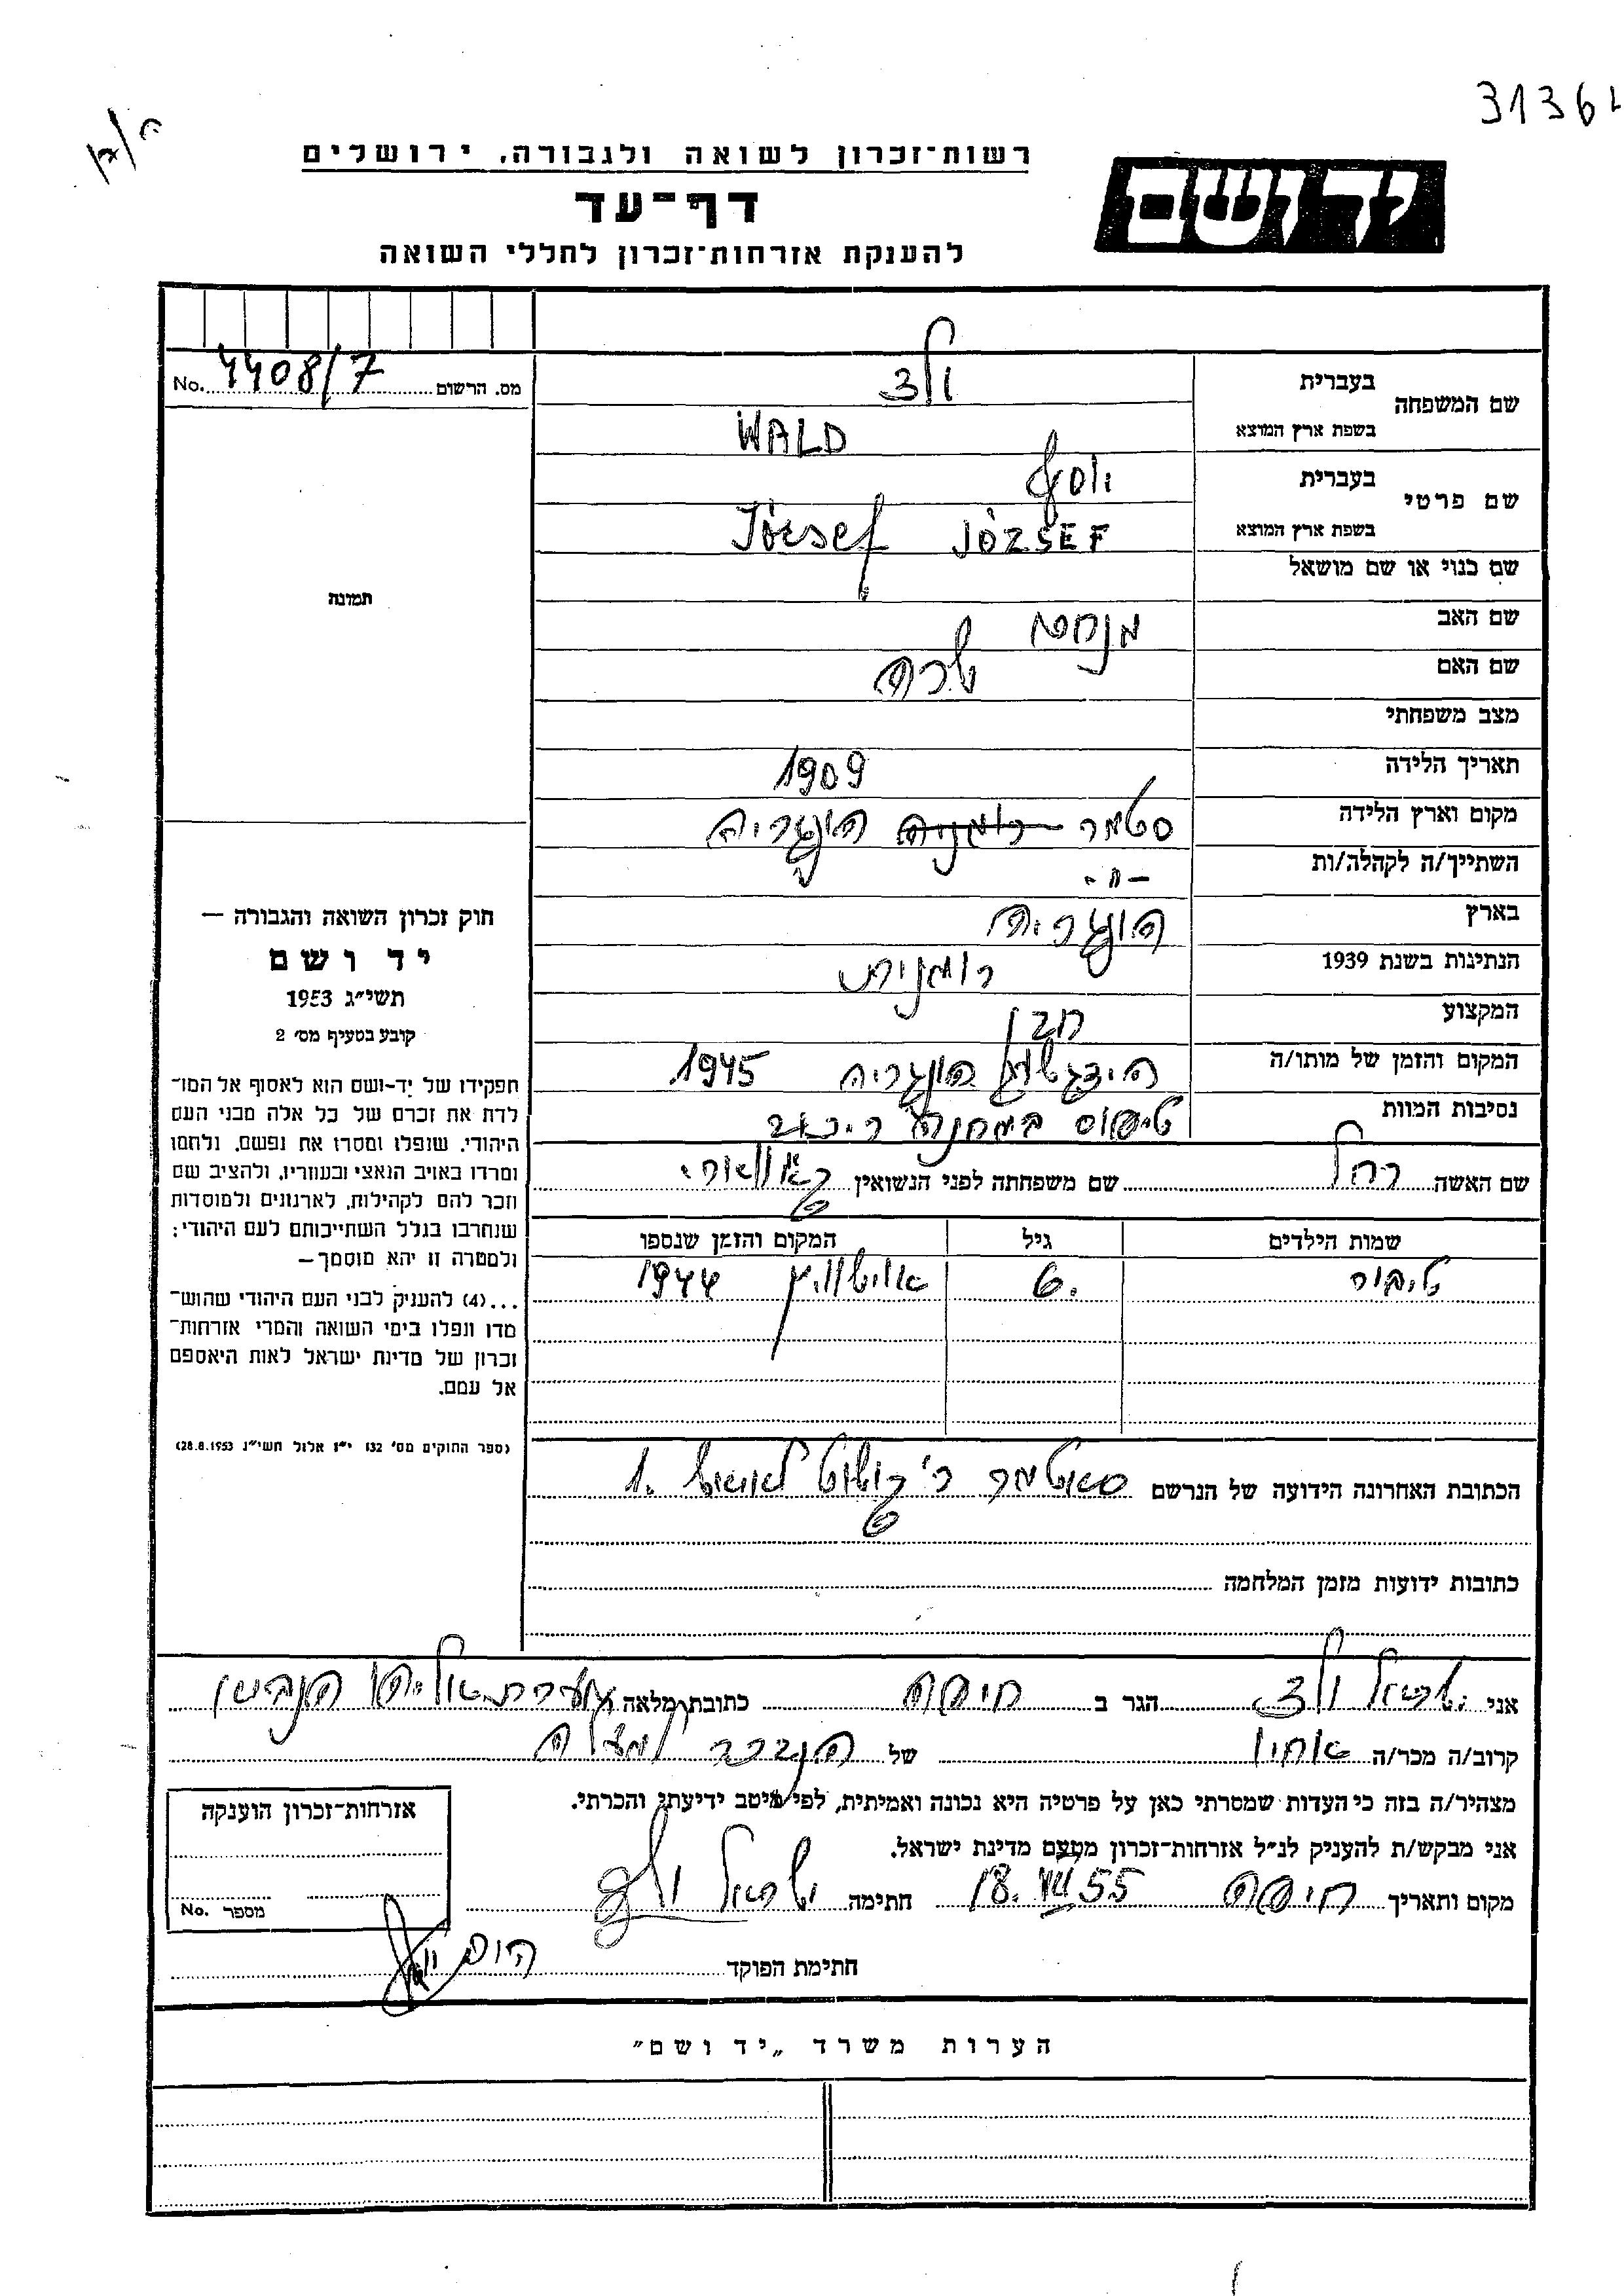 3136
רשות־זכרון לשואה ולגבורה, ירושלים
יד ושם
דף־עד
להענקת אזרחות־זכרון לחללי השואה
מס. הרשום 4408/7 No.
שם המשפחה בעברית ולד
בשפת ארץ המוצא WALD
שם פרטי בעברית יוסף
בשפת ארץ המוצא JÓZSEF József
שם כנוי או שם מושאל
תמונה
שם האב מנחם
שם האם שרה
מצב משפחתי
תאריך הלידה 1909
מקום וארץ הלידה סטמר רומניה הונגריה
השתייך/ה לקהלה/ות -"-
בארץ הונגריה
הנתינות בשנת 1939 רומנית
המקצוע
המקום והזמן של מותו/ה הונגריה 1945
נסיבות המוות טיפוס במחנה
שם האשה רחל שם משפחתה לפני הנשואין
שמות הילדים גיל המקום והזמן שנספו
טיבור 6. אושוויץ 1944
חוק זכרון השואה והגבורה —
יד ושם
תשי״ג 1953
קובע בסעיף מס׳ 2
תפקידו של יד־ושם הוא לאסוף אל המו־
לדת את זכרם של כל אלה מבני העם
היהודי, שנפלו ומסרו את נפשם, נלחמו
ומרדו באויב הנאצי ובעוזריו, ולהציב שם
וזכר להם לקהילות, לארגונים ולמוסדות
שנחרבו בגלל השתייכותם לעם היהודי;
ולמטרה זו יהא מוסמך—
...(4) להעניק לבני העם היהודי שהוש־
מדו ונפלו בימי השואה והמרי אזרחות־
זכרון של מדינת ישראל לאות היאספם
אל עמם.
(ספר החוקים מס׳ 132 י״ז אלול תשי״ג 28.8.1953)
הכתובת האחרונה הידועה של הנרשם סאטמר ר' קושוט לאיוש 1.
כתובות ידועות מזמן המלחמה
אני ישראל ולד הגר ב חיפה כתובת מלאה
קרוב/ה מכר/ה אחיו של הנזכר למעלה
מצהיר/ה בזה כי העדות שמסרתי כאן על פרטיה היא נכונה ואמיתית, לפי מיטב ידיעתי והכרתי.
אני מבקש/ת להעניק לנ״ל אזרחות־זכרון מטעם מדינת ישראל.
מקום ותאריך חיפה 18. VII 55 חתימה ישראל ולד
אזרחות־זכרון הוענקה
מספר No.
חתימת הפוקד
הערות משרד „יד ושם״